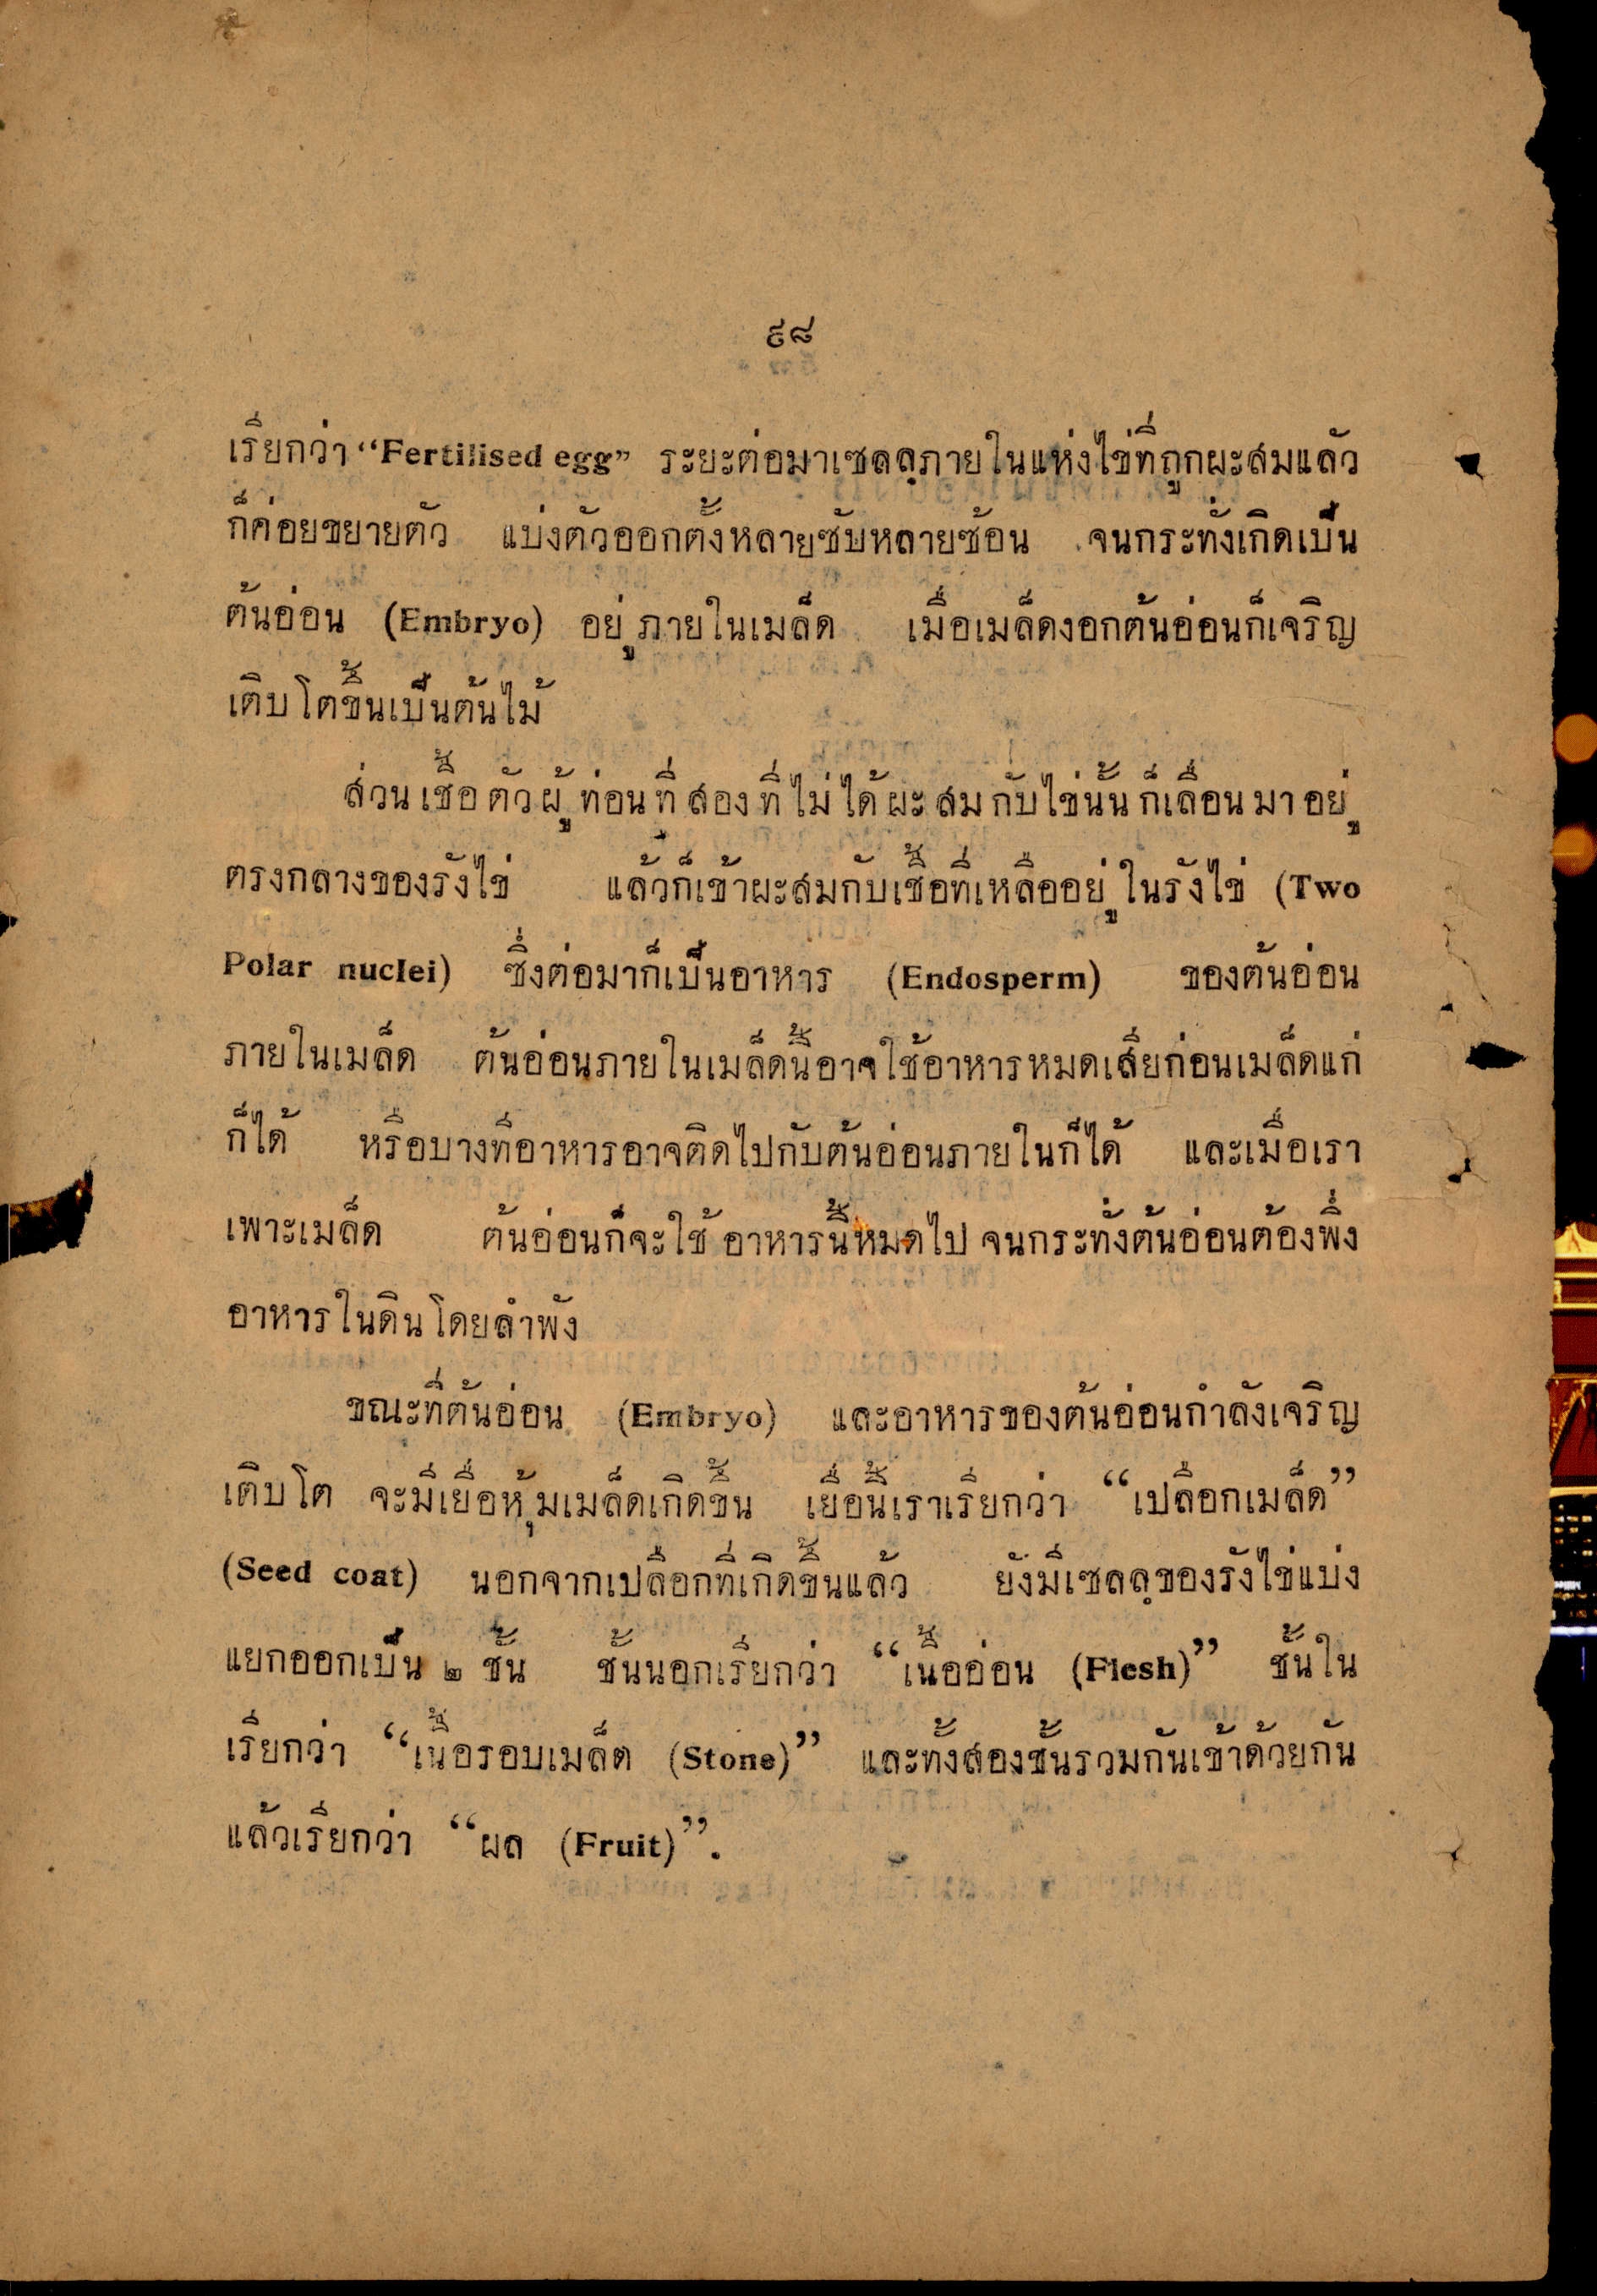 ๙๘
เรียกว่า “Fertilised egg” ระยะต่อมาเซลลฺภายในแห่งไข่ที่ถูกผะสมแล้ว
ก็ค่อยขยายตัว แบ่งตัวออกตั้งหลายซับหลายซ้อน จนกระทั่งเกิดเป็น
ต้นอ่อน (Embryo) อยู่ภายในเมล็ด เมื่อเมล็ดงอกต้นอ่อนก็เจริญ
เติบโตขึ้นเป็นต้นไม้
ส่วนเชื้อตัวผู้ท่อนที่สองที่ไม่ได้ผะสมกับไข่นั้นก็เลื่อนมาอยู่
ตรงกลางของรังไข่ แล้วก็เข้าผะสมกับเชื้อที่เหลืออยู่ในรังไข่ (Two
Polar nuclei) ซึ่งต่อมาก็เป็นอาหาร (Endosperm) ของต้นอ่อน
ภายในเมล็ด ต้นอ่อนภายในเมล็ดนี้อาจใช้อาหารหมดเสียก่อนเมล็ดแก่
ก็ได้ หรือบางทีอาหารอาจติดไปกับต้นอ่อนภายในก็ได้ และเมื่อเรา
เพาะเมล็ด ต้นอ่อนก็จะใช้อาหารนี้หมดไป จนกระทั่งต้นอ่อนต้องพึ่ง
อาหารในดินโดยลำพัง
ขณะที่ต้นอ่อน (Embryo) และอาหารของต้นอ่อนกำลังเจริญ
เติบโต จะมีเยื่อหุ้มเมล็ดเกิดขึ้น เยื่อนี้เราเรียกว่า “เปลือกเมล็ด”
(Seed coat) นอกจากเปลือกที่เกิดขึ้นแล้ว ยังมีเซลลฺของรังไข่แบ่ง
แยกออกเป็น ๒ ชั้น ชั้นนอกเรียกว่า “เนื้ออ่อน (Flesh)” ชั้นใน
เรียกว่า “เนื้อรอบเมล็ด (Stone)” และทั้งสองชั้นรวมกันเข้าด้วยกัน
แล้วเรียกว่า “ผล (Fruit)”.